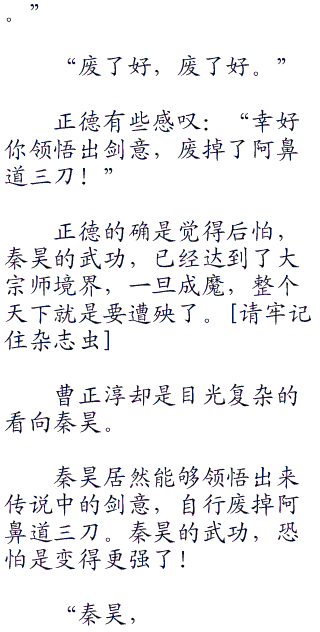 。”
“废了好，废了好。”
正德有些感叹：“幸好
你领悟出剑意，废掉了阿鼻
道三刀！”
正德的确是觉得后怕，
秦昊的武功，已经达到了大
宗师境界，一旦成魔，整个
天下就是要遭殃了。[请牢记
住杂志虫]
曹正淳却是目光复杂的
看向秦昊。
秦昊居然能够领悟出来
传说中的剑意，自行废掉阿
鼻道三刀。秦昊的武功，恐
怕是变得更强了！
“秦昊，